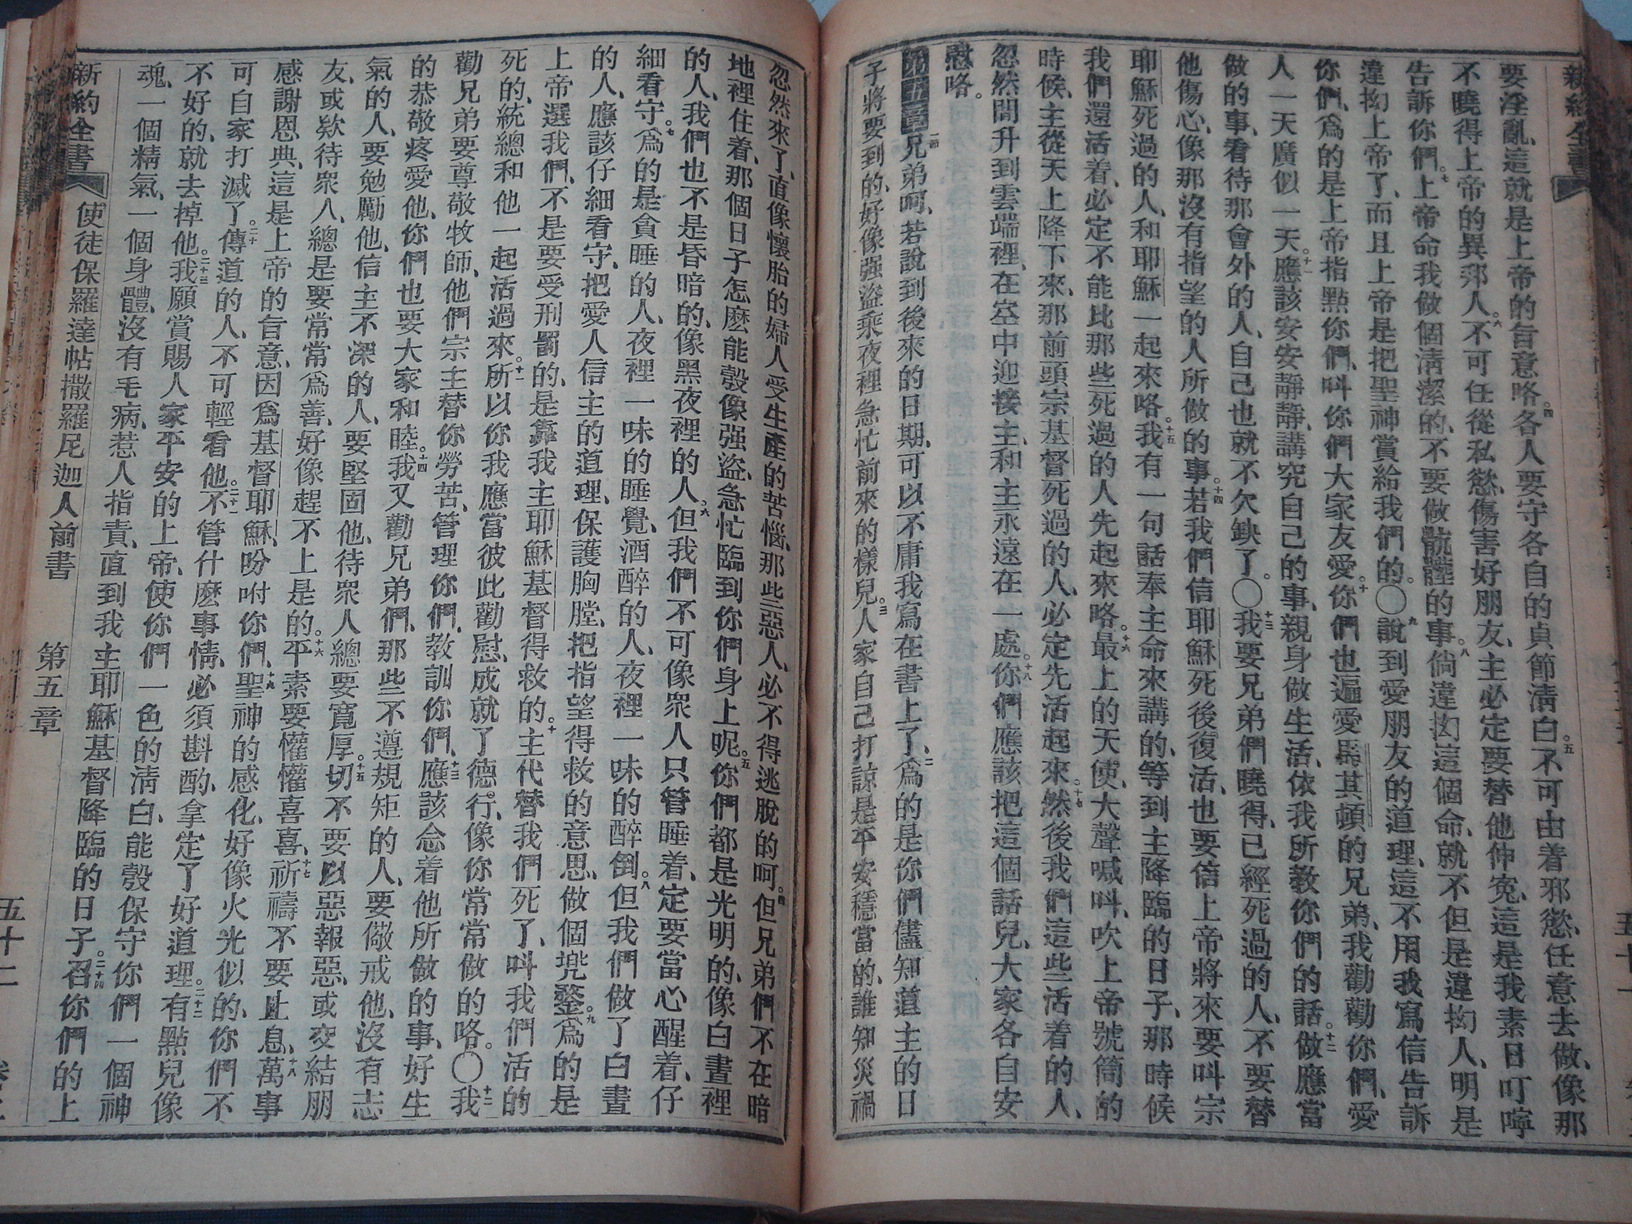 新約全書
要淫亂、這就是上帝的旨意咯。四各人要守各自的貞節淸白。五不可由着邪慾、任意去做、像那
不曉得上帝的異邦人。六不可任從私慾、傷害好朋友、主必定要替他伸寃、這是我素日叮嚀
告訴你們。七上帝命我做個淸潔的、不要做骯髒的事。八倘違拗這個命、就不但是違拗人、明是
違拗上帝了、而且上帝是把聖神賞給我們的。〇九說到愛朋友的道理、這不用我寫信告訴
你們、爲的是上帝指點你們、叫你們大家友愛。十你們也遍愛馬其頓的兄弟、我勸勸你們、愛
人一天廣似一天。十一應該安安靜靜、講究自己的事、親身做生活、依我所敎你們的話。十二做應當
做的事、看待那會外的人、自己也就不欠缺了。〇十三我要兄弟們曉得、已經死過的人、不要替
他傷心、像那沒有指望的人所做的事。十四若我們信耶穌死後復活、也要信上帝將來要叫宗
耶穌死過的人、和耶穌一起來咯。十五我有一句話奉主命來講的、等到主降臨的日子、那時候
我們還活着、必定不能比那些死過的人先起來咯。十六最上的天使、大聲喊叫、吹上帝號筒的
時候、主從天上降下來、那前頭宗基督死過的人、必定先活起來。十七然後我們這些活着的人、
忽然間升到雲端裡、在空中迎接主、和主永遠在一處。十八你們應該把這個話兒、大家各自安
慰咯。
第五章一兄弟呵、若說到後來的日期、可以不庸我寫在書上了。二爲的是你們儘知道主的日
子將要到的、好像强盜乘夜裡急忙前來的樣兒。三人家自己打諒是平安穩當的、誰知災禍
忽然來了、直像懷胎的婦人受生產的苦惱、那些惡人、必不得逃脫的呵。四但兄弟們不在暗
地裡住着、那個日子怎麽能彀像强盜、急忙臨到你們身上呢。五你們都是光明的、像白晝裡
的人、我們也不是昏暗的、像黑夜裡的人。六但我們不可像衆人只管睡着、定要當心醒着、仔
細看守。七爲的是貪睡的人、夜裡一味的睡覺、酒醉的人、夜裡一味的醉倒。八但我們做了白晝
的人、應該仔細看守、把愛人信主的道理、保護胸膛、把指望得救的意思、做個兜鍪。九爲的是
上帝選我們、不是要受刑罰的、是靠我主耶穌基督得救的。十主代替我們死了、叫我們活的
死的、統總和他一起活過來。十一所以你我應當彼此勸慰、成就了德行、像你常常做的咯。〇十二我
勸兄弟要尊敬牧師、他們宗主替你勞苦、管理你們、敎訓你們。十三應該念着他所做的事、好生
的恭敬疼愛他、你們也要大家和睦。十四我又勸兄弟們、那些不遵規矩的人、要儆戒他、沒有志
氣的人、要勉勵他、信主不深的人、要堅固他、待衆人總要寬厚。十五切不要以惡報惡、或交結朋
友、或欵待衆人、總是要常常爲善、好像趕不上是的。十六平素要懽懽喜喜。十七祈禱不要止息。十八萬事
感謝恩典、這是上帝的旨意、因爲基督耶穌吩咐你們。十九聖神的感化、好像火光似的、你們不
可自家打滅了。二十傳道的人、不可輕看他。二十一不管什麽事情、必須斟酌、拿定了好道理。二十二有點兒像
不好的、就去掉他。二十三我願賞賜人家平安的上帝、使你們一色的淸白、能彀保守你們一個神
魂、一個精氣、一個身體、沒有毛病、惹人指責、直到我主耶穌基督降臨的日子。二十四召你們的上
新約全書 使徒保羅達帖撒羅尼迦人前書 第五章 五十二